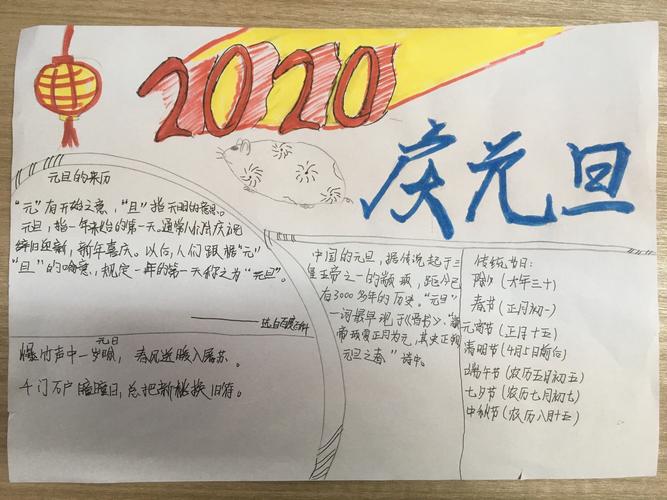 2020
庆元旦
元旦的来历
"元"有开始之意，"旦"指天明的意思。
元旦，指一年开始的第一天。通常人们用庆祝
辞旧迎新，新年喜庆。以后，人们跟据"元"
"旦"的喻意，规定一年的第一天称之为"元旦"。
——选自百度百科
元日
爆竹声中一岁除，春风送暖入屠苏。
千门万户瞳瞳日，总把新桃换旧符。
中国的元旦，据传说起于三
皇五帝之一的颛顼，距今已
有3000多年的历史。"元旦"
一词最早现于《晋书》："颛
帝以孟春正月为元，其实正朔
元旦之春"诗中。
传统节日：
除夕（大年三十）
春节（正月初一）
元宵节（正月十五）
清明节（4月5日前后）
端午节（农历五月初五）
七夕节（农历七月初七）
中秋节（农历八月十五）